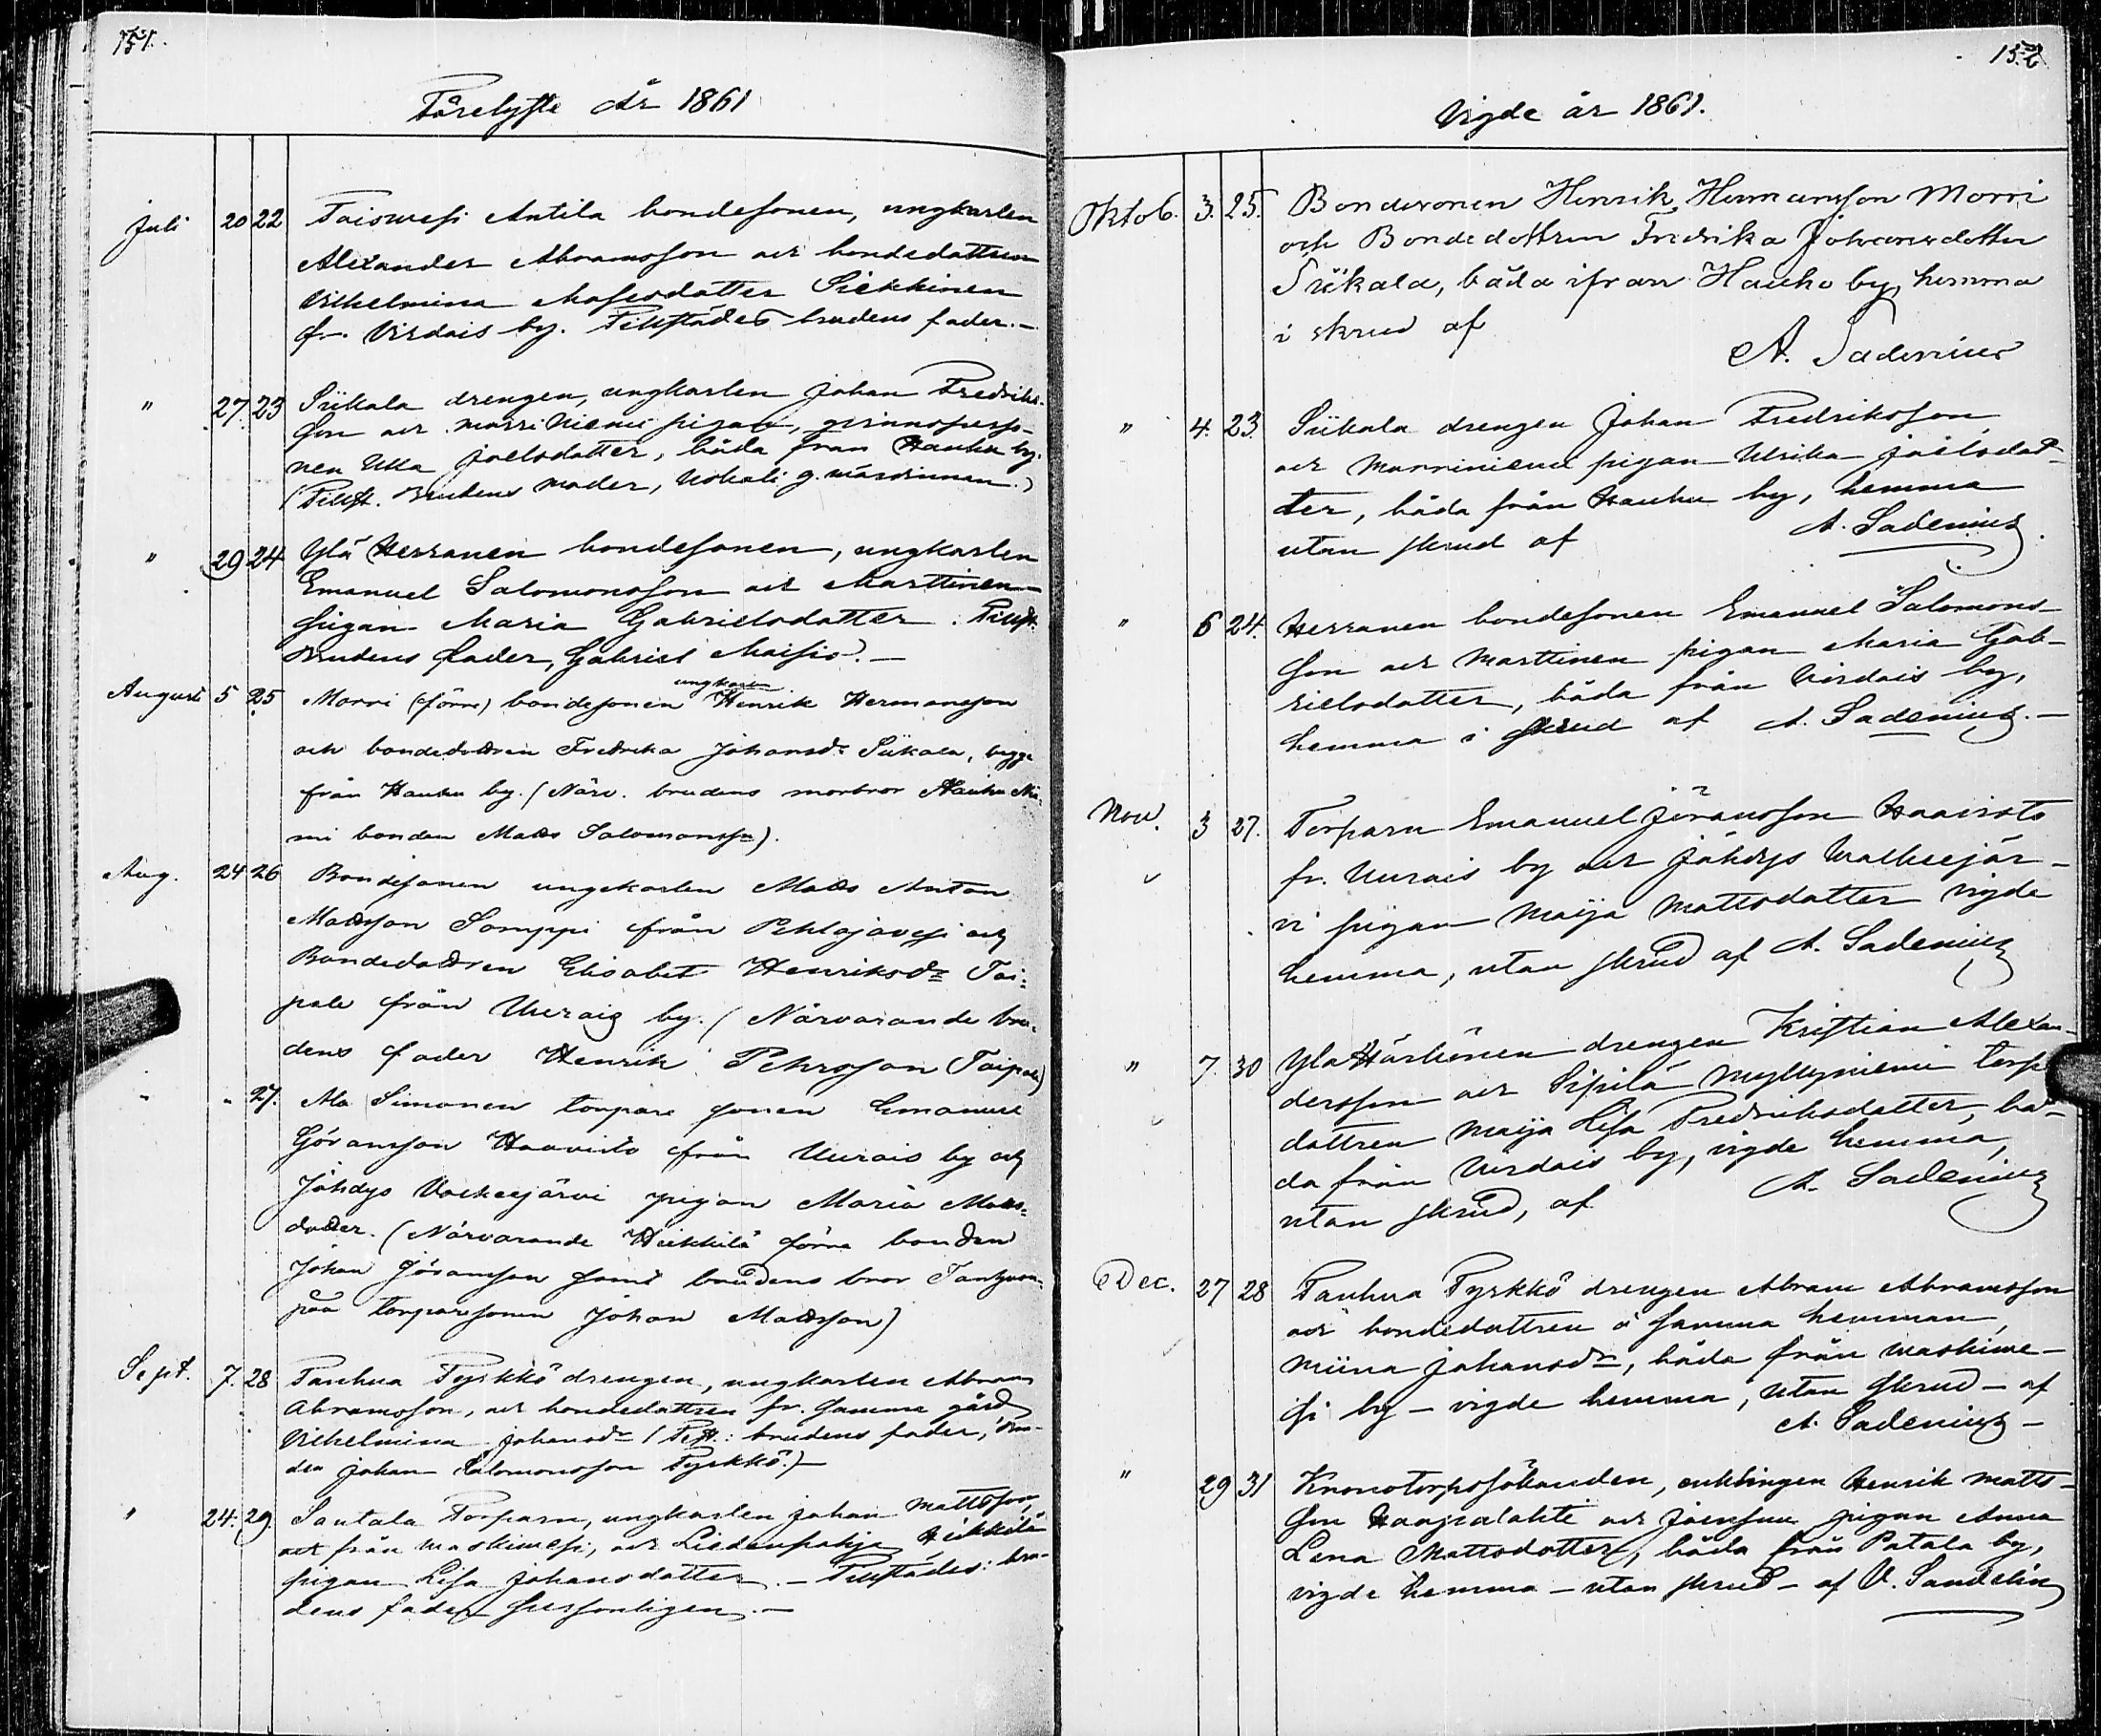 151.
Förelyste År 1861
Juli 20 22 Toiswesi Antila bondesonen, ungkarlen
Alexander Abramsson och bondedottren
Vilhelmina Mosesdotter Siekkinen
fr. Virdois by. Tillstädes brudens fader.-
" 27. 23 Siikala drengen, ungkarlen Johan Fredriks-
son och Morri Niemi pigan, qvinnsperso-
nen Ulla Joelsdotter, båda från Hauhu by.
(Tillst. Brudens moder, g. wärdinnan.)
" 29 24 Ylä Herranen bondesonen, ungkarlen
Emanuel Salomonsson och Marttinen
pigan Maria Gabrielsdotter. Tillst.
Brudens fader, Gabriel.-
Augusti 5 25 Morri (förre) bondesonen ungkarlen Henrik Hermansson
och bondedottren Fredrika Johansdr Siikala, bägge
från Hauhu by. (Närv. brudens morbror Hauhu Nie-
mi bonden Matts Salomonsson).
Aug. 24 26 Bondesonen ungekarlen Matts Anton
Mattsson Somppi från Pihlajavesi och
Bondedottren Elisabet Henriksdr Tai-
pale från Uurais by. (Närvarande bru-
dens fader Henrik Pehrsson Taipale)
" " 27. Ala Simonen torpare sonen Emanuel
Göransson Haavisto från Uurais by och
Jähdys Valkeejärvi pigan Maria Matts-
dotter. (Närvarande Heikkilä förre bonden
Johan Göransson samt brudens bror
pää torparesonen Johan Mattsson)
Sept. 7. 28 Pauhua Pyrkkö drengen, ungkarlen Abram
Abramsson, och bondedottren fr. samma gård
Vilhelmina Johansdr (Tillst.: brudens fader, bon-
den Johan Salomonsson Pyrkkö.)-
" 24. 29. Santala Torparn, ungkarlen Johan Mattsson,
från Waskiwesi, och Liedenpohja Heikkilä
pigan Lisa Johansdotter.- Tillstädes: bru-
dens fader personligen.-
152
Vigde år 1861.
Oktob. 3. 25. Bondesonen Henrik Hermansson Morri
och Bondedottren Fredrika Johansdotter
Siikala, båda ifrån Hauho by, hemma
i skrud af
A. Sadenius
" 4. 23. Siikala drengen Johan Fredriksson
och Morriniemi pigan Ulrika Joelsdot-
ter, båda från Hauhu by, hemma
utan skrud af A. Sadenius.
" 6 24. Herranen bondesonen Emanuel Salomons-
son och Marttinen pigan Maria Gab-
rielsdotter, båda från Virdois by,
hemma i skrud af A. Sadenius.-
Nov. 3 27. Torparn Emanuel Jöransson Haavisto
fr. Uurais by och Jähdys Walkeejär-
vi pigan Maija Mattsdotter vigde
hemma, utan skrud af A. Sadenius
" 7. 30 Yla Härkönen drengen Kristian Alexan-
dersson och Sipilä Myllyniemi torp
dottren Maija Lisa Fredriksdotter, bå-
da från Virdois by, vigde hemma,
utan skrud, af A. Sadenius
Dec. 27 28 Pauhua Pyrkkö drengen Abram Abramsson
och bondedottren å samma hemman,
Miina Johansdr, båda från Waskiwe-
si by - vigde hemma, utan skrud - af
A. Sadenius -
" 29 31 Kronotorpssökanden, enklingen Henrik Matts-
son Haapalahti och Joensuu pigan Anna
Lena Mattsdotter, båda från Patala by,
vigde hemma - utan skrud - af V. Sandelin